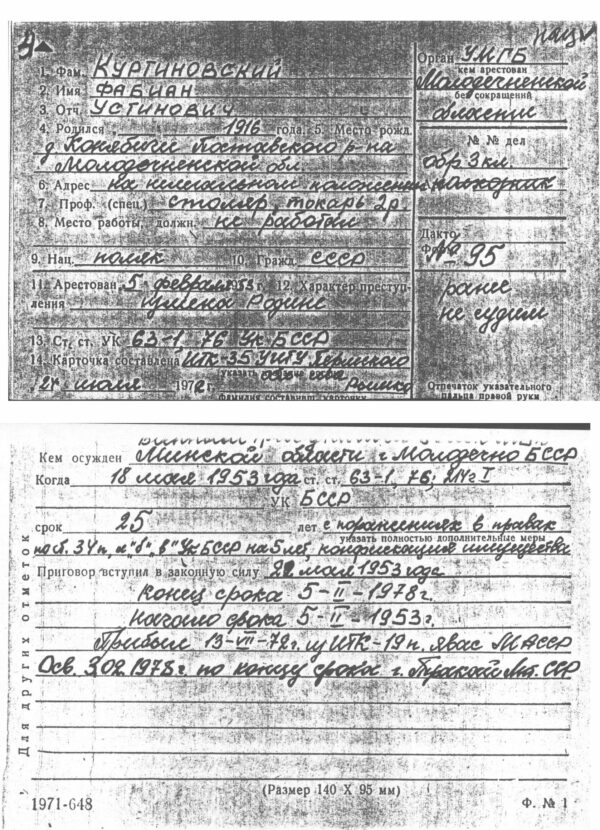 1. Фам. КУРТИНОВСКИЙ
2. Имя ФАБИАН
3. Отч. УСТИНОВИЧ
4. Родился 1916 года. 5. Место рожд.
д. Поставского р-на
Молодечненской обл.
6. Адрес на нелегальном положении
7. Проф. (спец.) столяр, токарь 2р
8. Место работы, должн. не работал
9. Нац. поляк 10. Гражд. СССР
11. Арестован 5 февраля 1953 г. 12. Характер преступ-
ления измена Родине
13. Ст. ст. УК 63-1, 76 УК БССР
14. Карточка составлена ИТК-35 Пермского
указать
24 июля 1972 г.
фамилия составившего карточку
Орган УМГБ
кем арестован
Молодечненской
без сокращений
области
№ № дел
обр 3 кл.
Дакто
Ф
№ 95
ранее
не судим
Отпечаток указательного
пальца правой руки
Кем осужден Минской области г. Молодечно БССР
Когда 18 мая 1953 года ст. ст. 63-1, 76, 214 г I
УК БССР
срок 25 лет с поражением в правах
указать полностью дополнительные меры
по ст. 34 п. "а" "б", "в" УК БССР на 5 лет, конфискация имущества
Приговор вступил в законную силу 22 мая 1953 года
Конец срока 5-II-1978 г.
Начало срока 5-II-1953 г.
Прибыл 13-VII-72 г. из ИТК-19 п. Явас МАССР
Осв. 3.02.1978 г. по концу срока г. Тракай Лит. ССР
Для других отметок
(Размер 140 X 95 мм)
1971-648
Ф. № 1